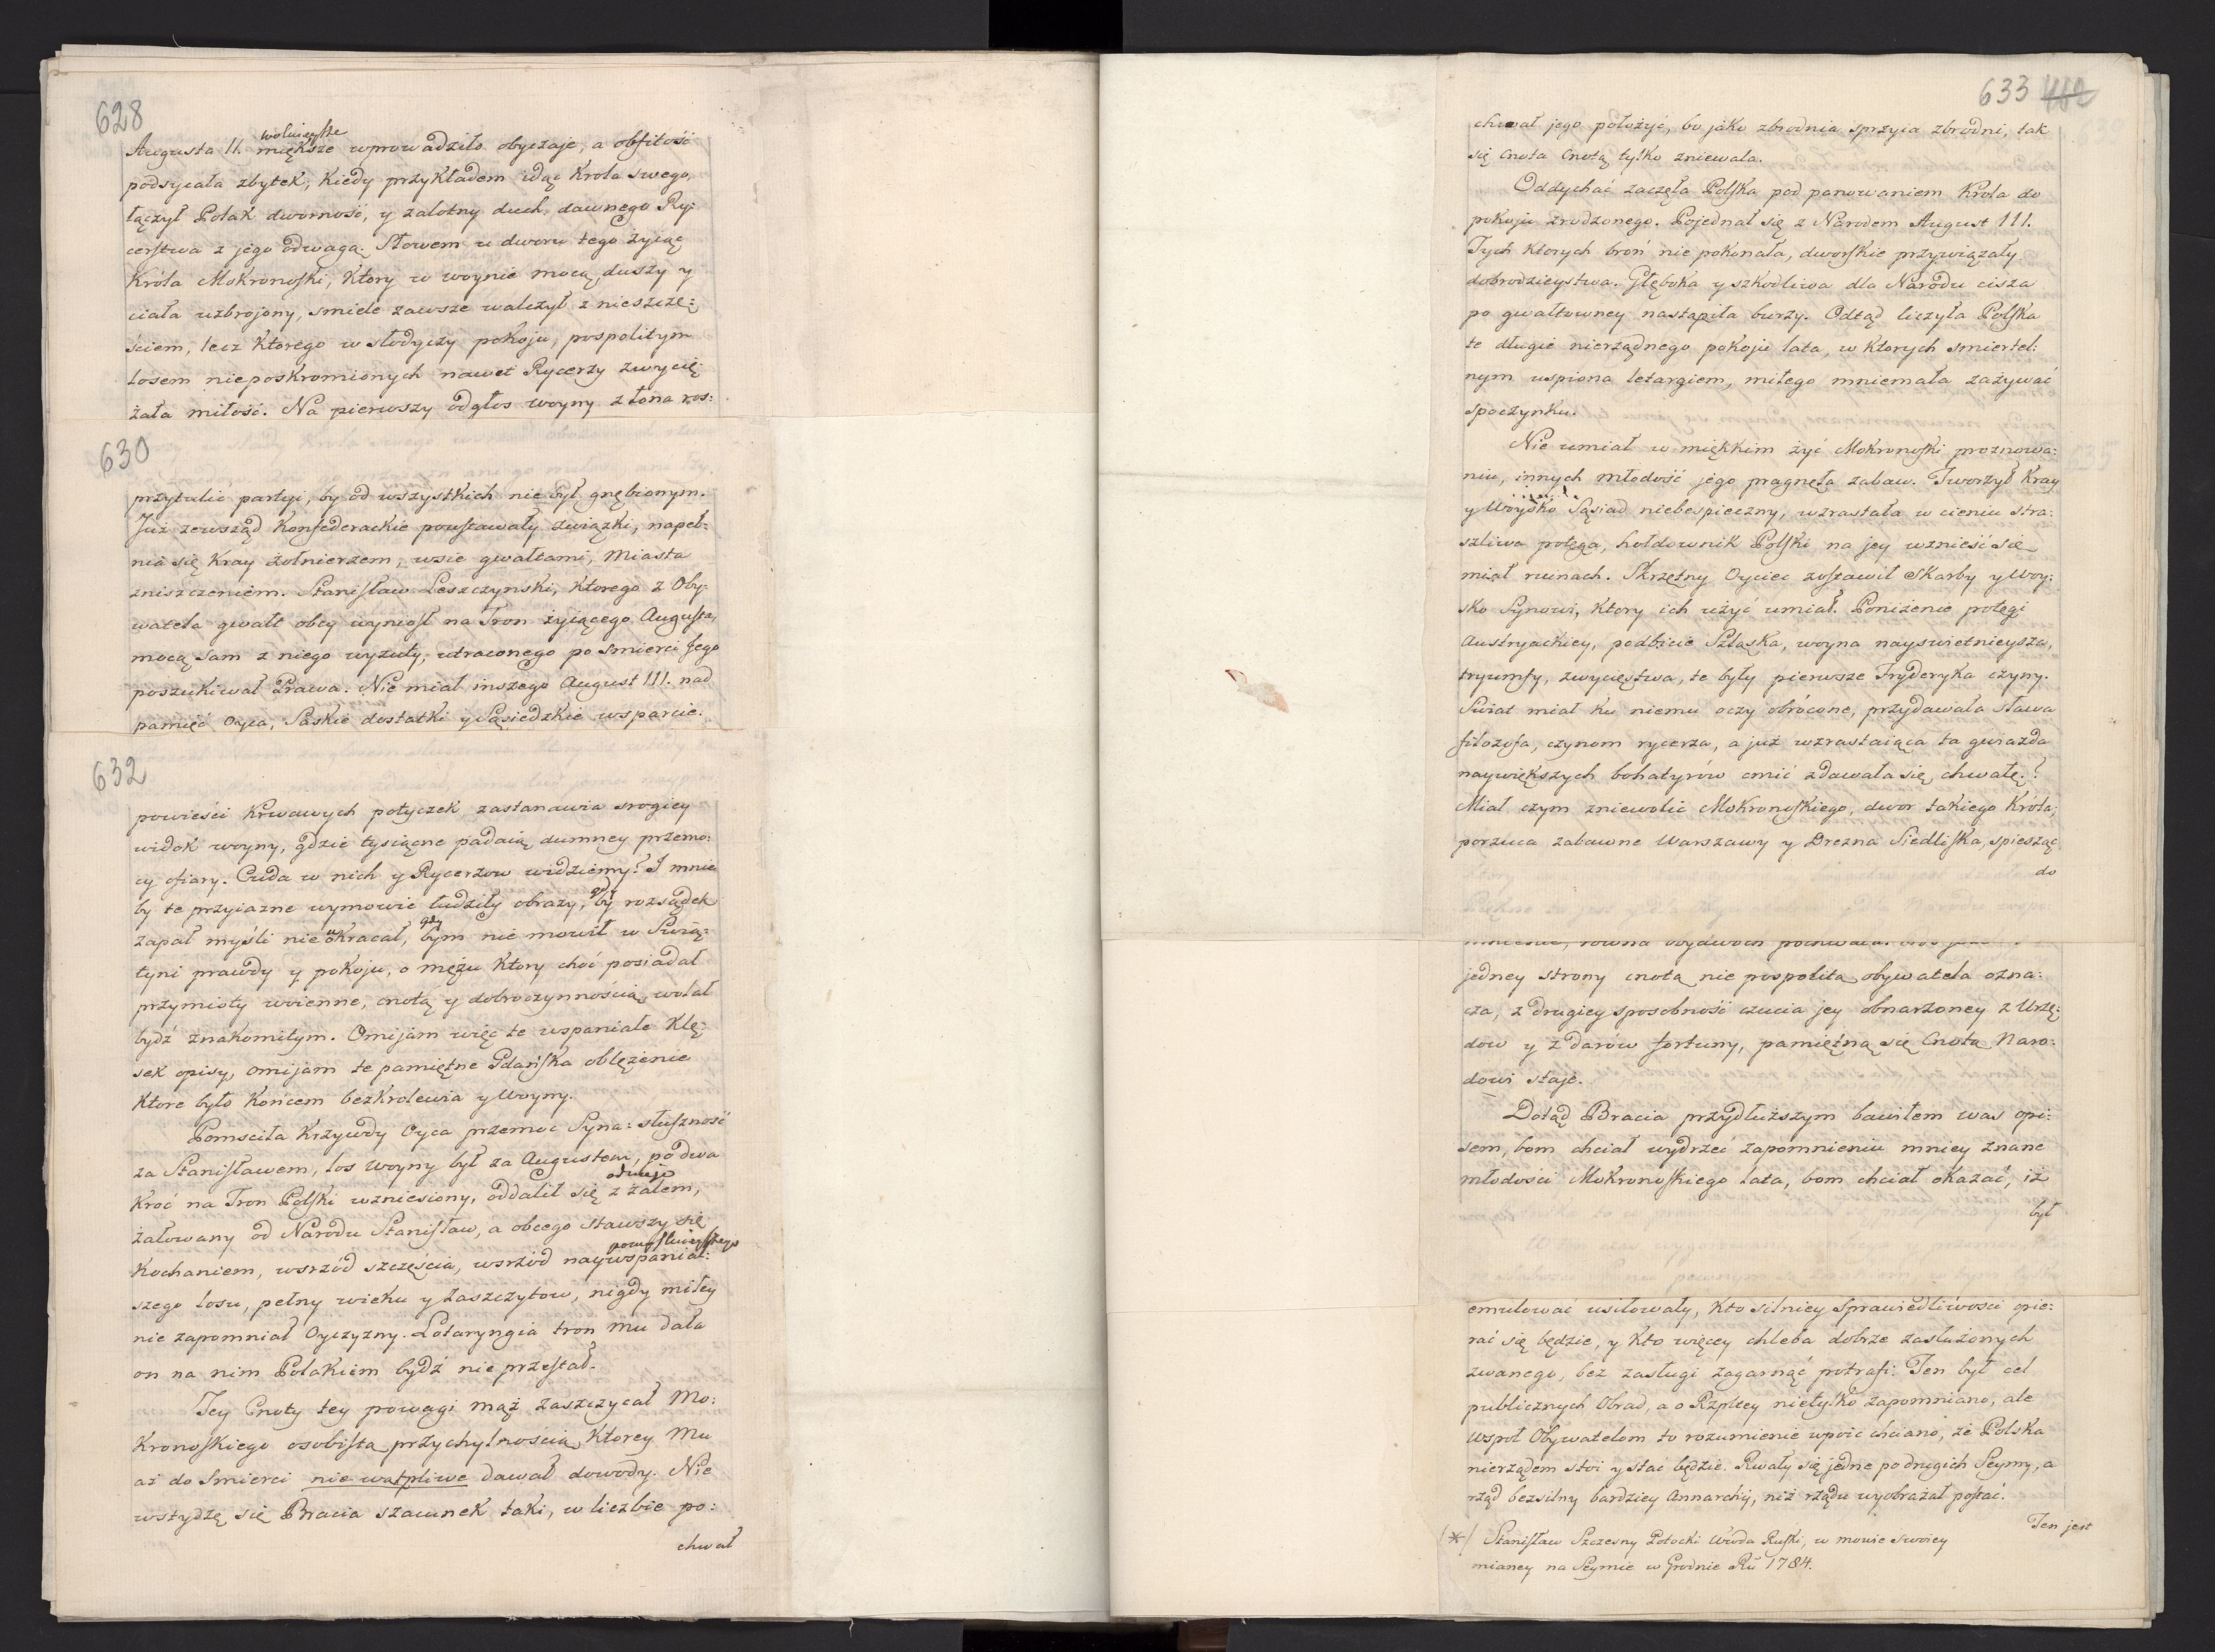 628
wolnieysze
Augusta II. miększe wprowadziło obyczaje, a obfitość
podsycała zbytek, kiedy przykładem idąc Krola swego,
łączył Polak dworność, y zalotny duch, dawnego Ry:
cerstwa z jego odwagą. Słowem u dworu tego żyiąc
Króla Mokronoski, ktory w woynie mocą duszy y
ciała uzbrojony, smiele zawsze walczył z nieszczę:
ściem, lecz ktorego w słodyczy pokoju, pospolitym
losem nieposkromionych nawet Rycerzy zwycię:
żała miłość. Na pierwszy odgłos woyny z łona ros:
630
przytulić partyi, by od wszystkich nie był gnębionym.
Już zewsząd Konfederackie powstawały związki, napeł:
nia się Kray żołnierzem, wsie gwałtami, Miasta
zniszczeniem. Stanisław Leszczynski, ktorego z Oby:
watela gwałt obcy wyniosł na Tron żyiącego Augusta,
mocą sam z niego wyzuty, utraconego po smierci Jego
poszukiwał Prawa. Nie miał inszego August III. nad
pamięć Oyca, Saskie dostatki y Sąsiedzkie wsparcie.
632
powieści Krwawych potyczek zastanawia srogiey
widok woyny, gdzie tysiączne padaią dumney przemo:
cy ofiary. Cuda w nich y Rycerzow widziemy? I mnie
by te przyiazne wymowie łudziły obrazy, gdyby rozsądek
zapał myśli nie ukracał, gdybym nie mowił w Swią:
tyni prawdy y pokoju, o mężu ktory choć posiadał
przymioty woienne, cnotą y dobroczynnością wolał
bydź znakomitym. Omijam więc te wspaniałe Klę:
sek opisy, omijam te pamiętne Gdańska oblężenie
Ktore było Końcem bezkrolewia y Woyny.
Pomsciła Krzywdy Oyca przemoc Syna: słuszność
za Stanisławem, los woyny był za Augustem, po dwa
Kroć na Tron Polski wzniesiony, oddalił się z żalem,
żałowany od Narodu Stanisław, a obcego stawszy się
pomyślnieyszego
Kochaniem, wsrzód szczęścia, wsrzód naywspaniał:
szego losu, pełny wieku y zaszczytow, nigdy miłey
nie zapomniał Oyczyzny. Lotaryngia tron mu dała
on na nim Polakiem bydź nie przestał.
Jey Cnoty tey powagi mąż zaszczycał Mo:
Kronoskiego osobistą przychylnością, ktorey Mu
aż do Smierci nie wątpliwe dawał dowody. Nie
wstydzę się Bracia szacunek taki, w liczbie po:
chwał
633 462
chwał jego położyć, bo jako zbrodnia sprzyia zbrodni, tak
się cnota cnotą tylko zniewala.
Oddychać zaczęła Polska pod panowaniem Krola do
pokoju zrodzonego. Pojednał się z Narodem August III.
Tych ktorych broń nie pokonała, dworskie przywiązały
dobrodzieystwa. Głęboka y szkodliwa dla Narodu cisza
po gwałtowney nastąpiła burzy. Odtąd liczyła Polska
te długie nierządnego pokoju lata, w ktorych smiertel:
nym uspiona letargiem, miłego mniemała zażywać
spoczynku.
Nie umiał w miękkim żyć Mokronoski proznowa:
niu, innych młodość jego pragnęła zabaw. Tworzył Kray
y Woysko Sąsiad niebespieczny, wzrastała w cieniu stra:
szliwa potęga, hołdownik Polski na jey wznieść się
miał ruinach. Skrzętny Oyciec zostawił Skarby y Woy:
sko Synowi, ktory ich użyć umiał. Poniżenie potęgi
Austryackiey, podbicie Szląska, woyna nayswietnieysza,
tryumfy, zwycięstwa, te były pierwsze Fryderyka czyny.
Swiat miał ku niemu oczy obrócone, przydawała sława
filozofa, czynom rycerza, a już wzrastaiąca ta gwiazda
naywiększych bohatyrów cmić zdawała się chwałę.?
Miał czym zniewolić Mokronoskiego, dwor takiego Króla,
porzuca zabawne Warszawy y Drezna Siedliska, spiesząc
do
jedney strony cnotą nie pospolitą obywatela ozna:
cza, z drugiey sposobność czucia jey obnarżoney z Urzę:
dow y z darów fortuny, pamiętną się Cnota Naro:
dowi staje.
Dotąd Bracia przydłuższym bawiłem was opi:
sem, bom chciał wydrzeć zapomnieniu mniey znane
młodości Mokronoskiego lata, bom chciał okazać, iż
był
emulować usiłowały, kto silniey Sprawiedliwości opie:
rać się będzie, y kto więcey chleba dobrze zasłużonych
zwanego, bez zasługi zagarnąć potrafi. Ten był cel
publicznych Obrad, a o Rzpltey nietylko zapomniano, ale
Wspoł Obywatelom to rozumienie wpoić chciano, że Polska
nierządem stoi y stać będzie. Rwały się jedne po drugich Seymy, a
rząd bezsilny bardziey Annarchij, niż rządu wyobrażał postać.
Ten jest
(*) Stanisław Szczesny Potocki Wwda Ruski, w mowie swoiey
mianey na Seymie w Grodnie Ru 1784.